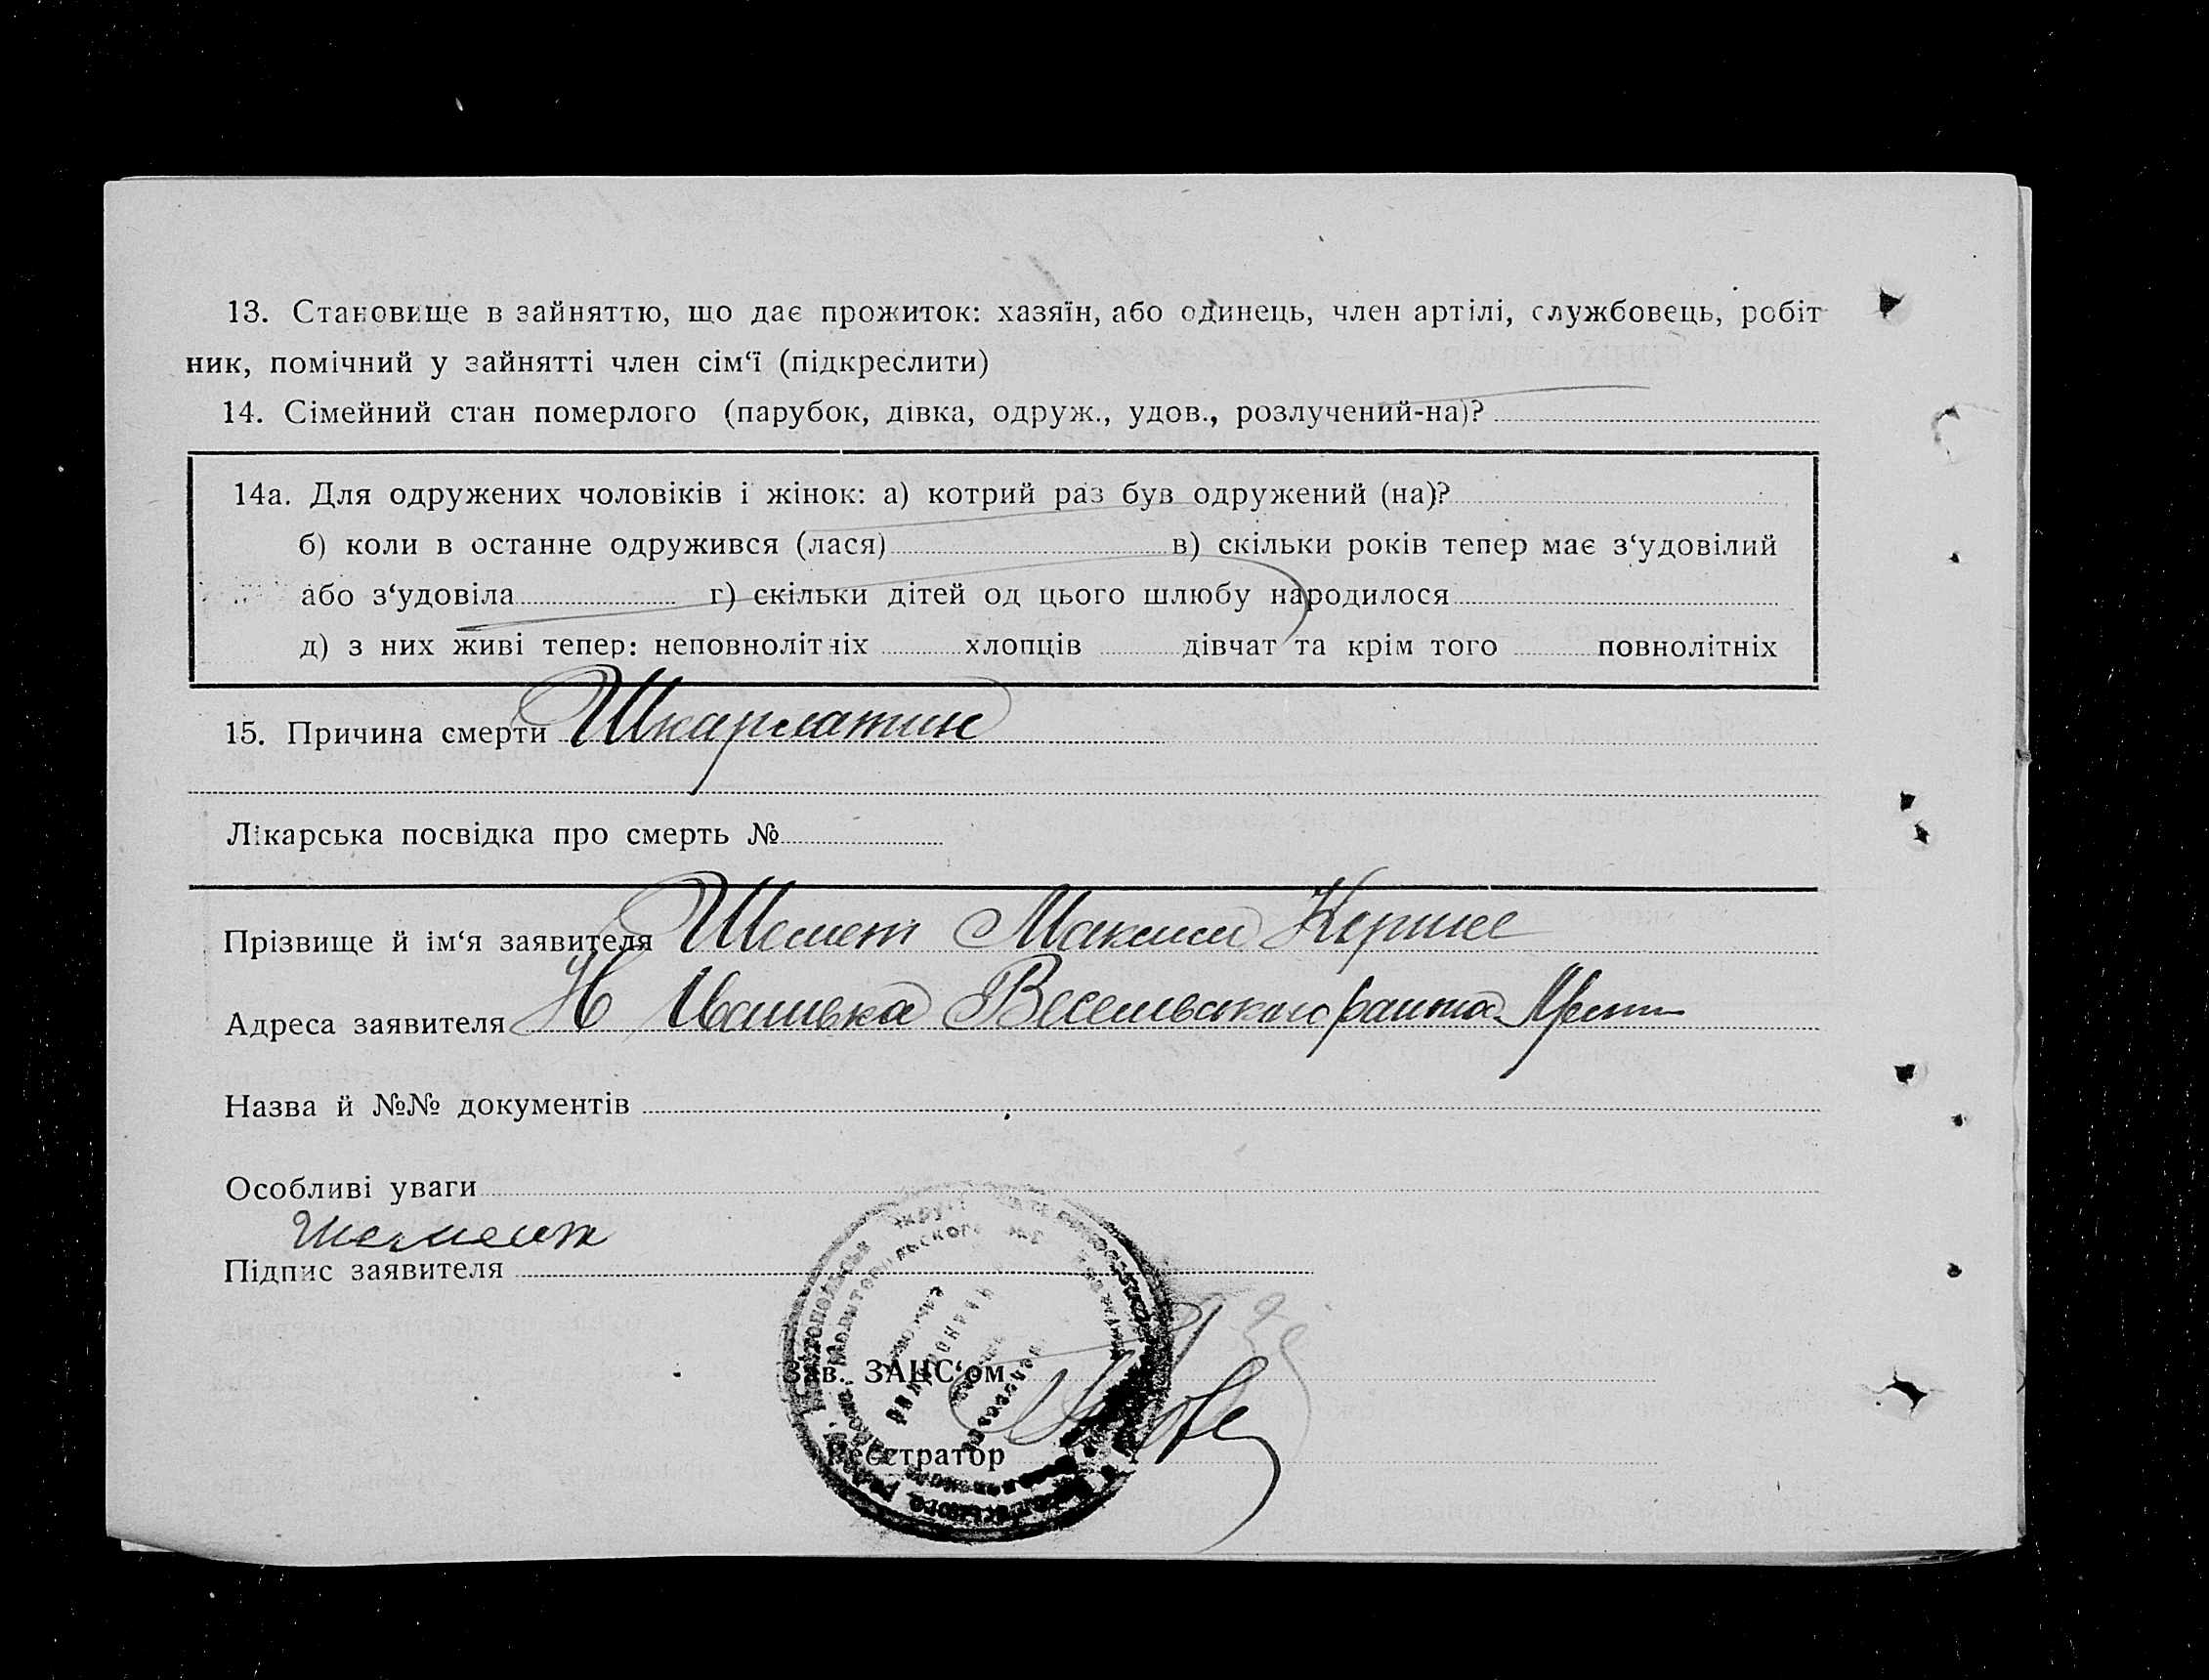 13. Становище в зайняттю, що дає прожиток: хазяїн, або одинець, член артілі, службовець, робіт-
ник, помічний у зайнятті член сім‘ї (підкреслити)
14. Сімейний стан померлого (парубок, дівка, одруж., удов., розлучений-на)?
14а. Для одружених чоловіків і жінок: а) котрий раз був одружений (на)?
б) коли в останне одружився (лася) в) скільки років тепер має з‘удовілий
або з‘удовіла г) скільки дітей од цього шлюбу народилося
д) з них живі тепер: неповнолітніх хлопців дівчат та крім того повнолітніх
15. Причина смерти Шкарлатин
Лікарська посвідка про смерть №
Прізвище й ім‘я заявителя Шемет Максим
Адреса заявителя Н Іванівка Веселівського району
Назва й №№ документів
Особливі уваги
Шемет
Підпис заявителя
Зав. ЗАЦС‘ом
Реєстратор